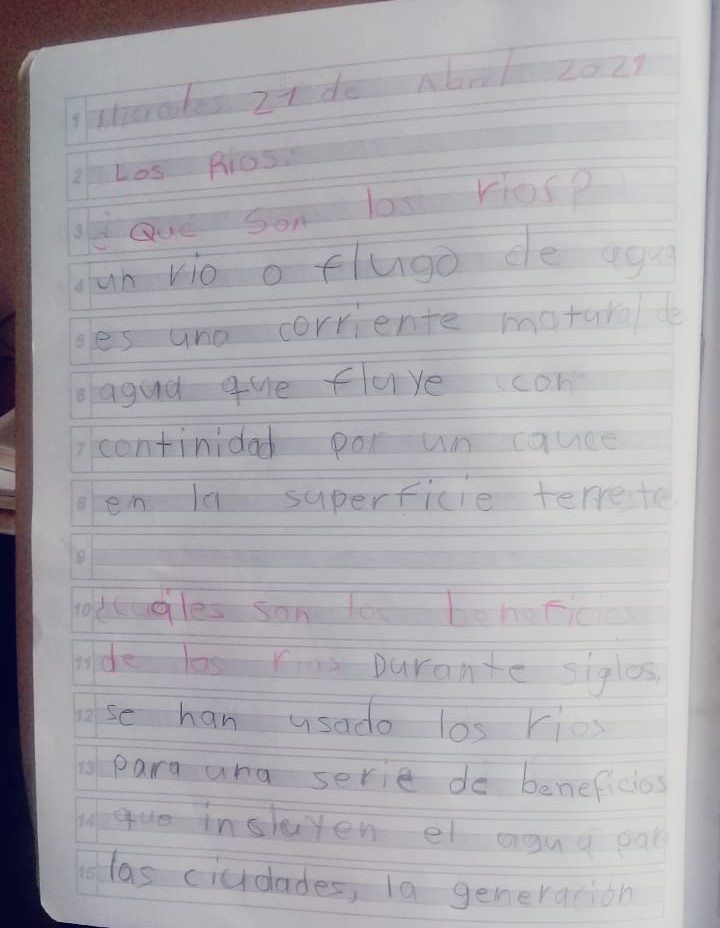 Miercoles 21 de Abril 2021
Los Rios:
¿Que Son los rios?
un rio o flugo de agua
es una corriente matural de
agua que fluye con
continidad por un cauce
en la superficie terrestre
¿cuáles son los beneficios
de los rios Durante siglos,
se han usado los rios
para una serie de beneficios
que insluyen el agua par
las ciudades, la generación